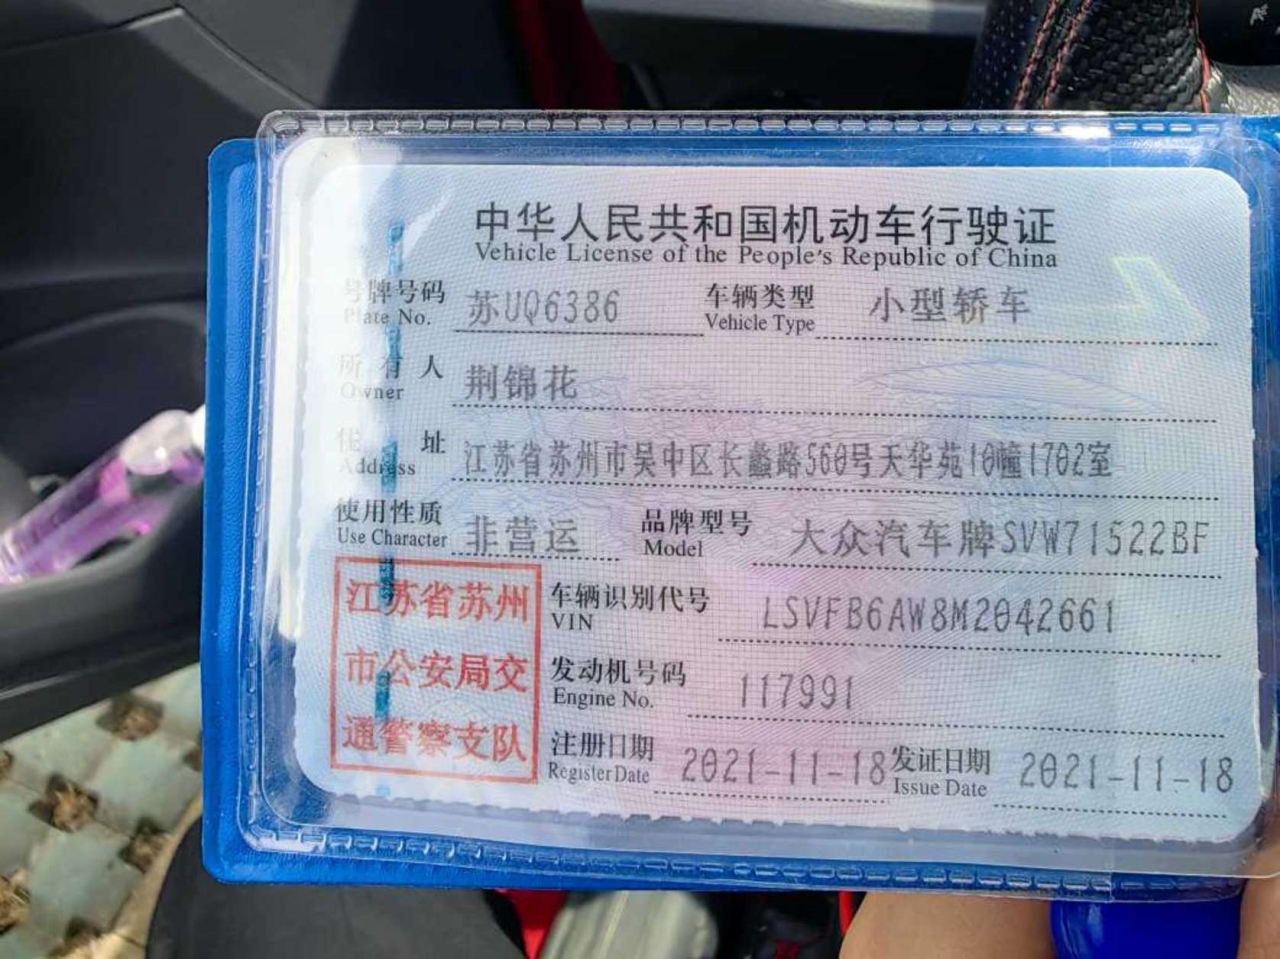 中华人民共和国机动车行驶证
Vehicle License of the People's Republic of China
号牌号码 苏UQ6386 车辆类型 小型轿车
Plate No. Vehicle Type
所有人 荆锦花
Owner
住址 江苏省苏州市吴中区长蠡路560号天华苑10幢1702室
Address
使用性质 非营运 品牌型号 大众汽车牌SVW71522BF
Use Character Model
江苏省苏州
市公安局交
通警察支队
车辆识别代号 LSVFB6AW8M2042661
VIN
发动机号码 117991
Engine No.
注册日期 2021-11-18 发证日期 2021-11-18
Register Date Issue Date